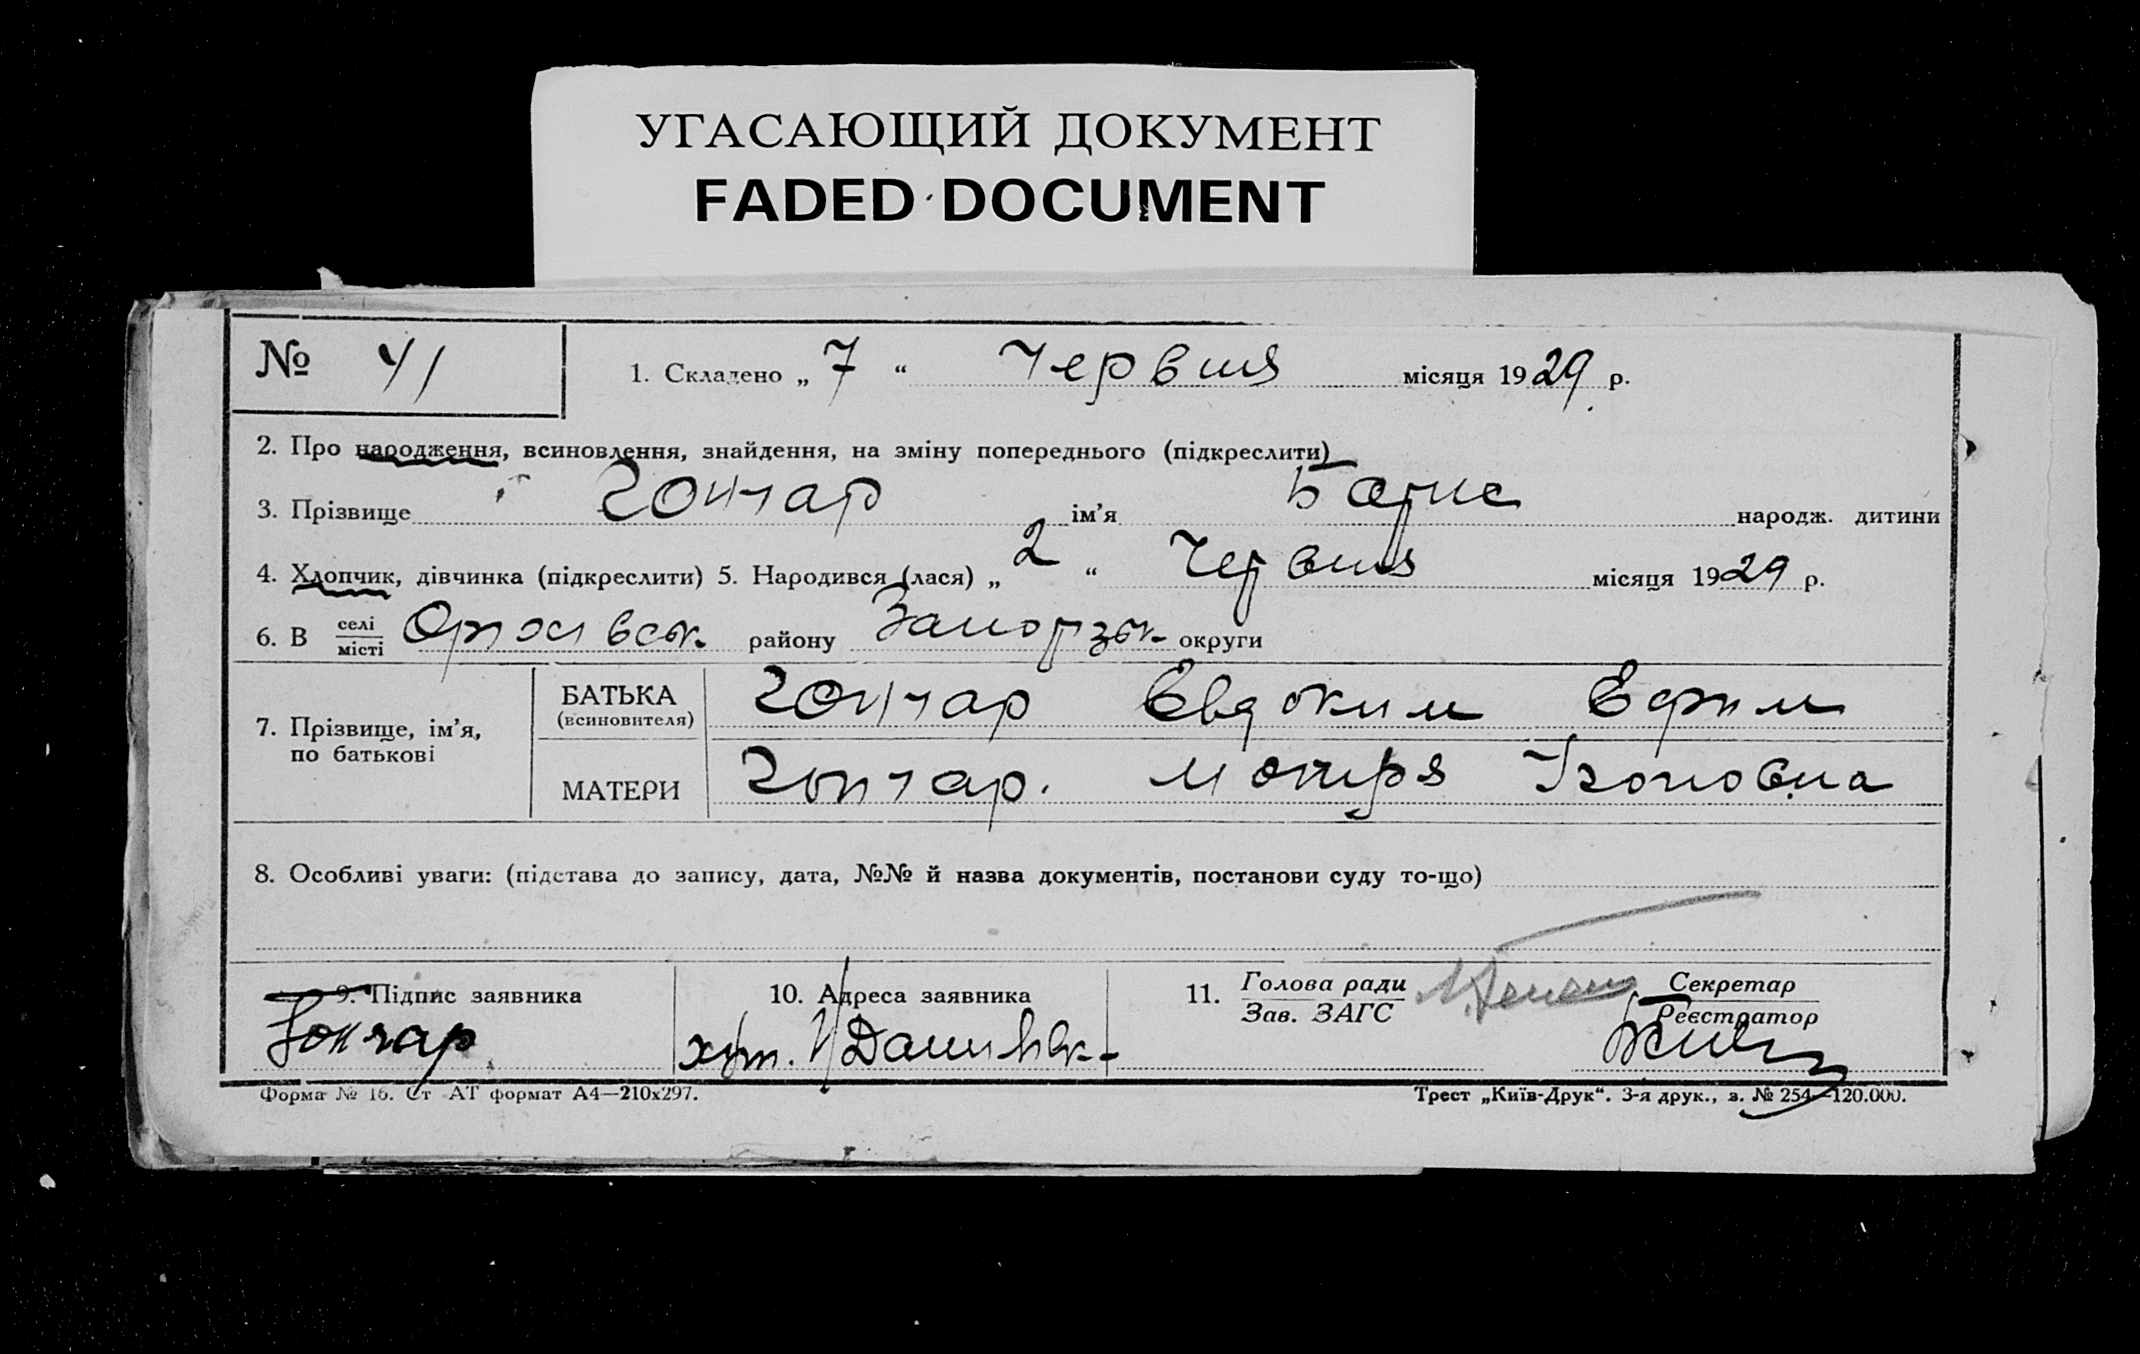 УГАСАЮЩИЙ ДОКУМЕНТ
FADED DOCUMENT
№ 41
1. Складено „ 7 “ Червня місяця 1929 р.
2. Про народження, всиновлення, знайдення, на зміну попереднього (підкреслити)
3. Прізвище Гончар ім’я Борис народж. дитини
4. Хлопчик, дівчинка (підкреслити) 5. Народився (лася) „ 2 “ Червня місяця 1929 р.
6. В селі місті району округи
7. Прізвище, ім’я, по батькові
БАТЬКА (всиновителя) Гончар Евдоким Ефим
МАТЕРИ Гончар.
8. Особливі уваги: (підстава до запису, дата, №№ й назва документів, постанови суду то-що)
9. Підпис заявника
10. Адреса заявника
11. Голова ради Зав. ЗАГС
Секретар Реєстратор
Гончар хут.
Форма № 16. Ст АТ формат А4—210х297.
Трест „Київ-Друк“. 3-я друк., з. № 254—120.000.